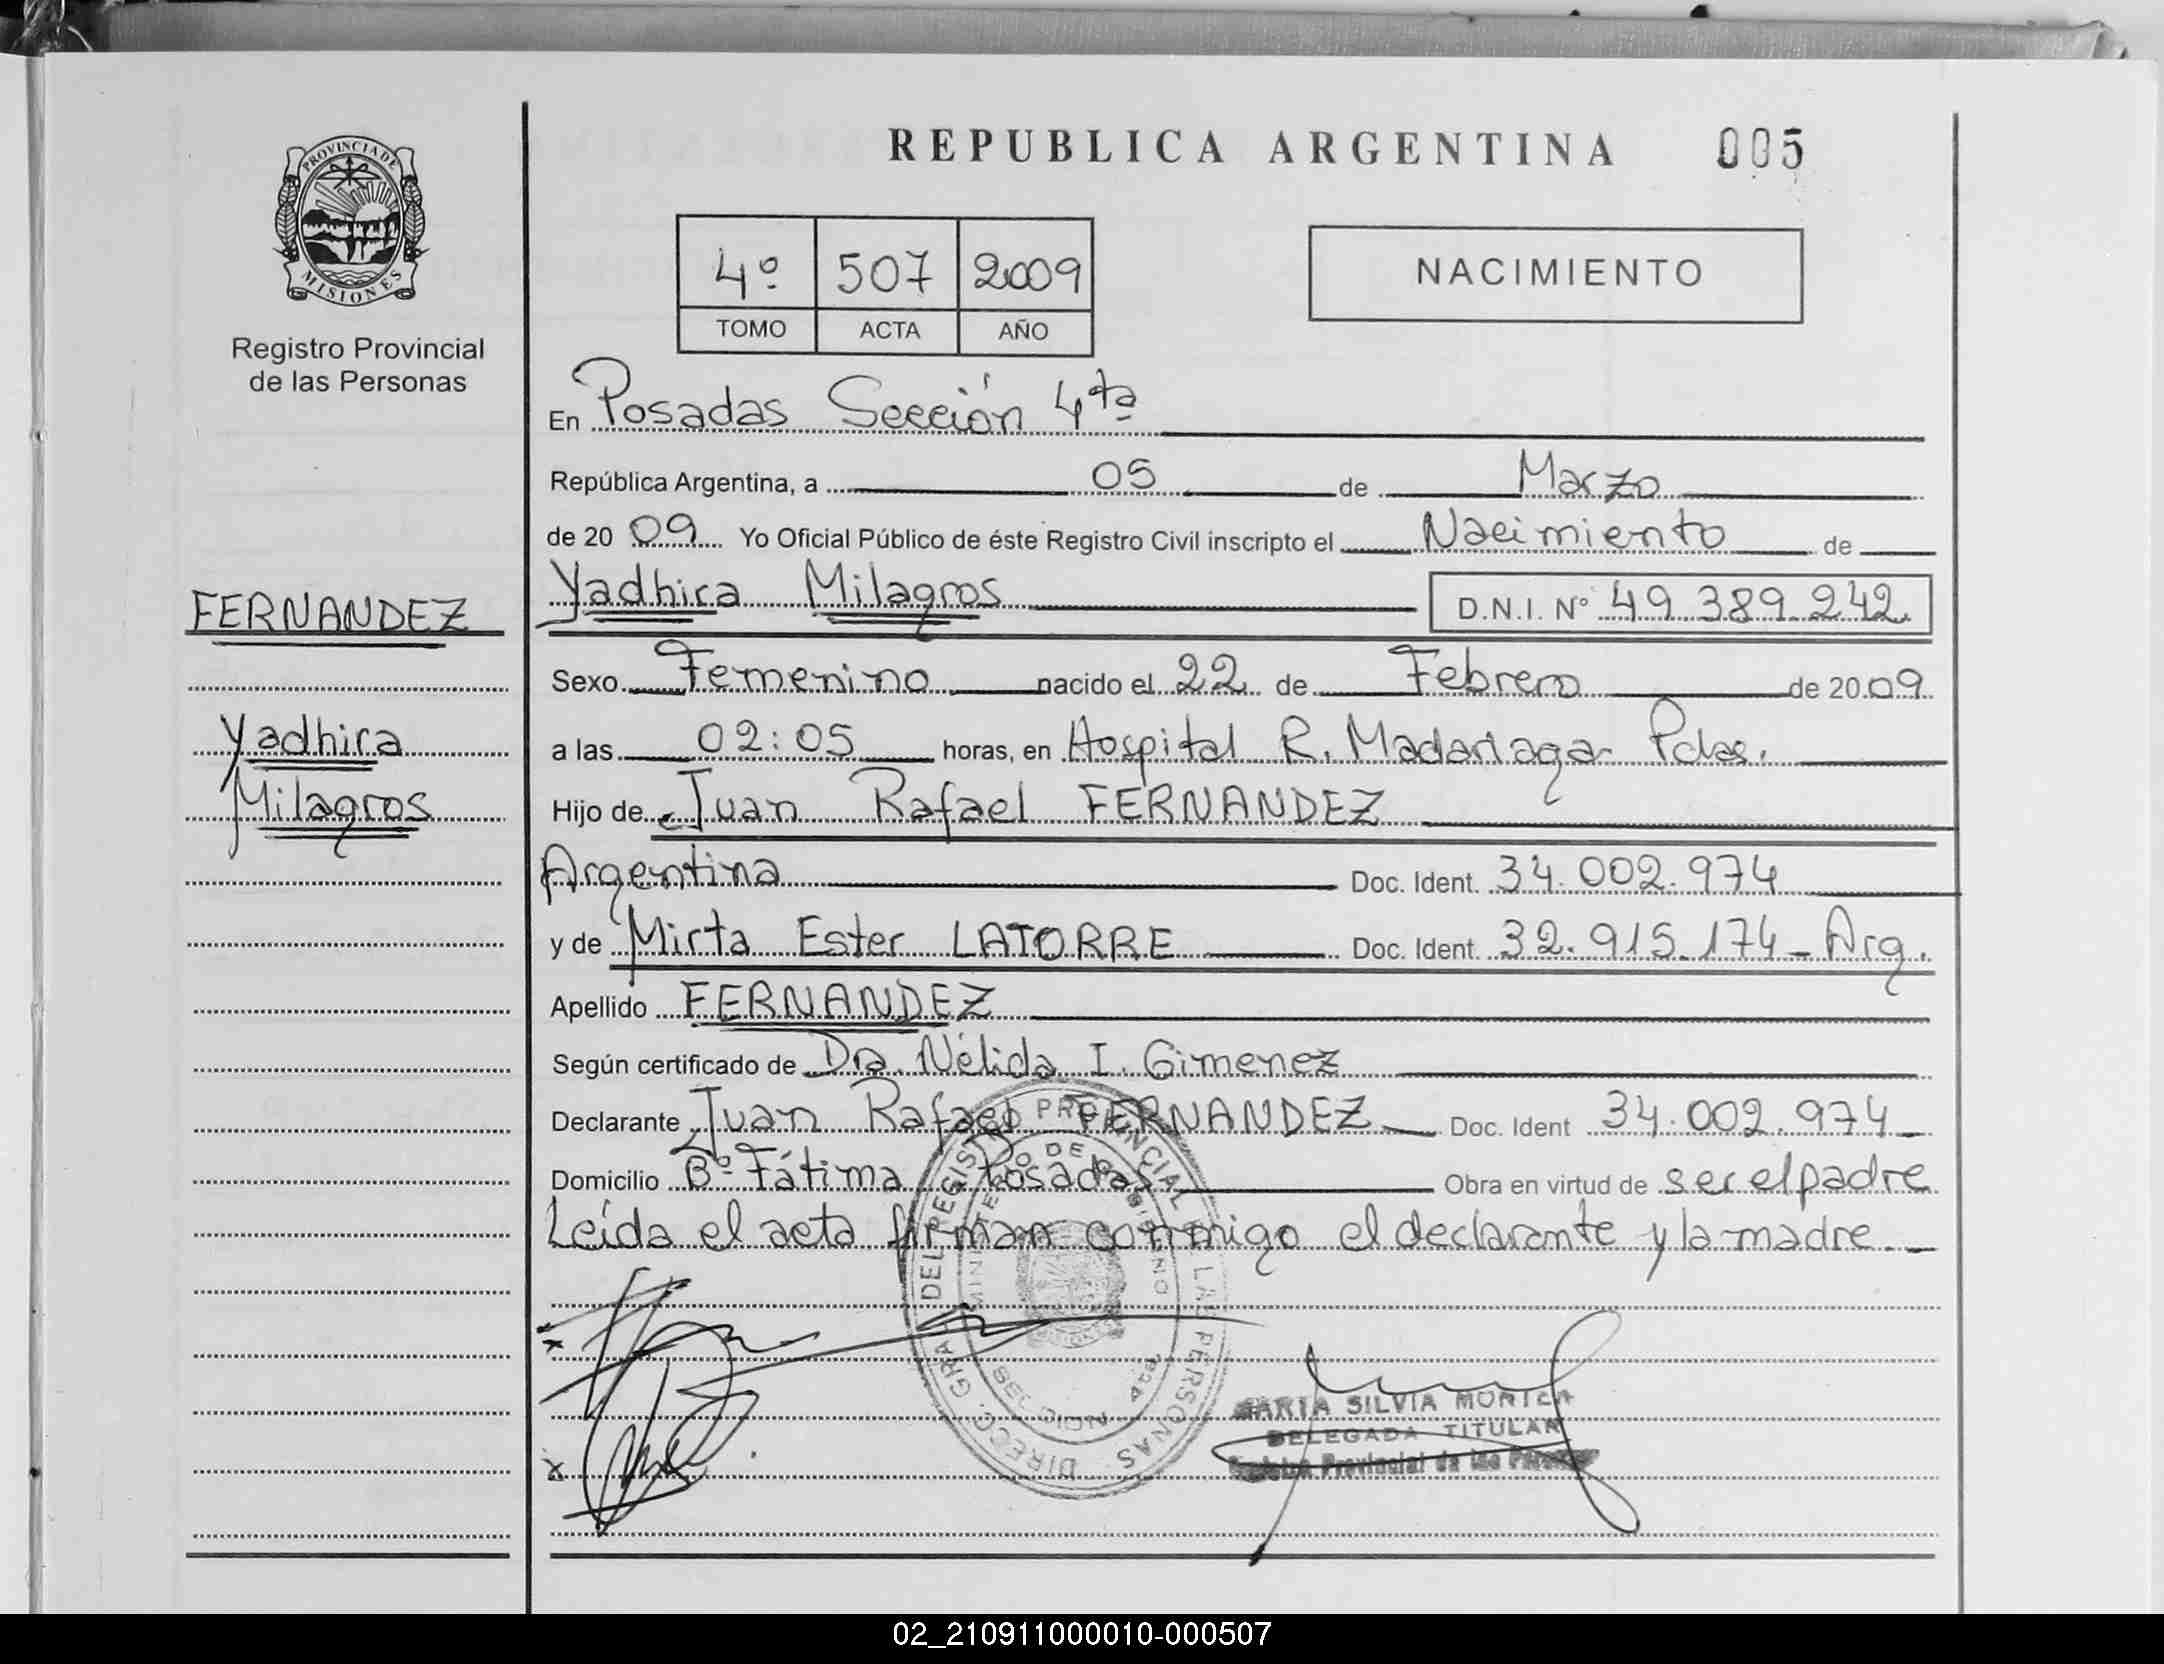 REPUBLICA ARGENTINA 005
PROVINCIA DE
MISIONES
Registro Provincial
de las Personas
4º 507 2009
TOMO ACTA AÑO
NACIMIENTO
En Posadas Sección 4ta
República Argentina, a 05 de Marzo
de 20 09 Yo Oficial Público de éste Registro Civil inscripto el Nacimiento de
FERNANDEZ
Yadhira Milagros D.N.I. Nº 49.389.242
Sexo Femenino nacido el 22 de Febrero de 20 09
Yadhira
Milagros
a las 02:05 horas, en Hospital R. Madariaga Pdas.
Hijo de Juan Rafael FERNANDEZ
Argentina Doc. Ident. 34.002.974
y de Mirta Ester LATORRE Doc. Ident. 32.915.174 - Arg.
Apellido FERNANDEZ
Según certificado de Dra. Nélida I. Gimenez
Declarante Juan Rafael FERNANDEZ Doc. Ident 34.002.974
Domicilio Bº Fátima Posadas Obra en virtud de ser el padre
Leída el acta firman conmigo el declarante y la madre.
DIRECC. GRAL DEL REGISTRO PROVINCIAL DE LAS PERSONAS
MARIA SILVIA MONICA
DELEGADA TITULAR
Registro Provincial de las Personas
02_210911000010-000507